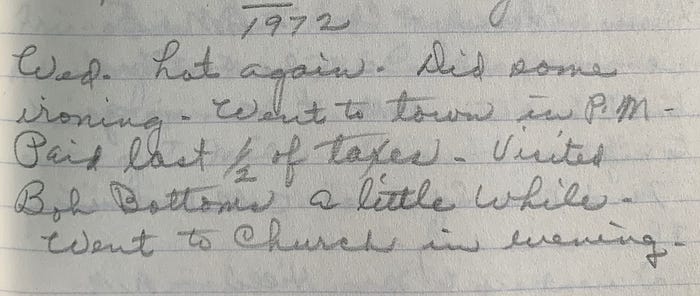 1972
Wed. hot again. Did some
ironing - Went to town in P.M -
Paid last 1/2 of taxes - Visited
Bob Bottoms a little while -
Went to Church in evening -